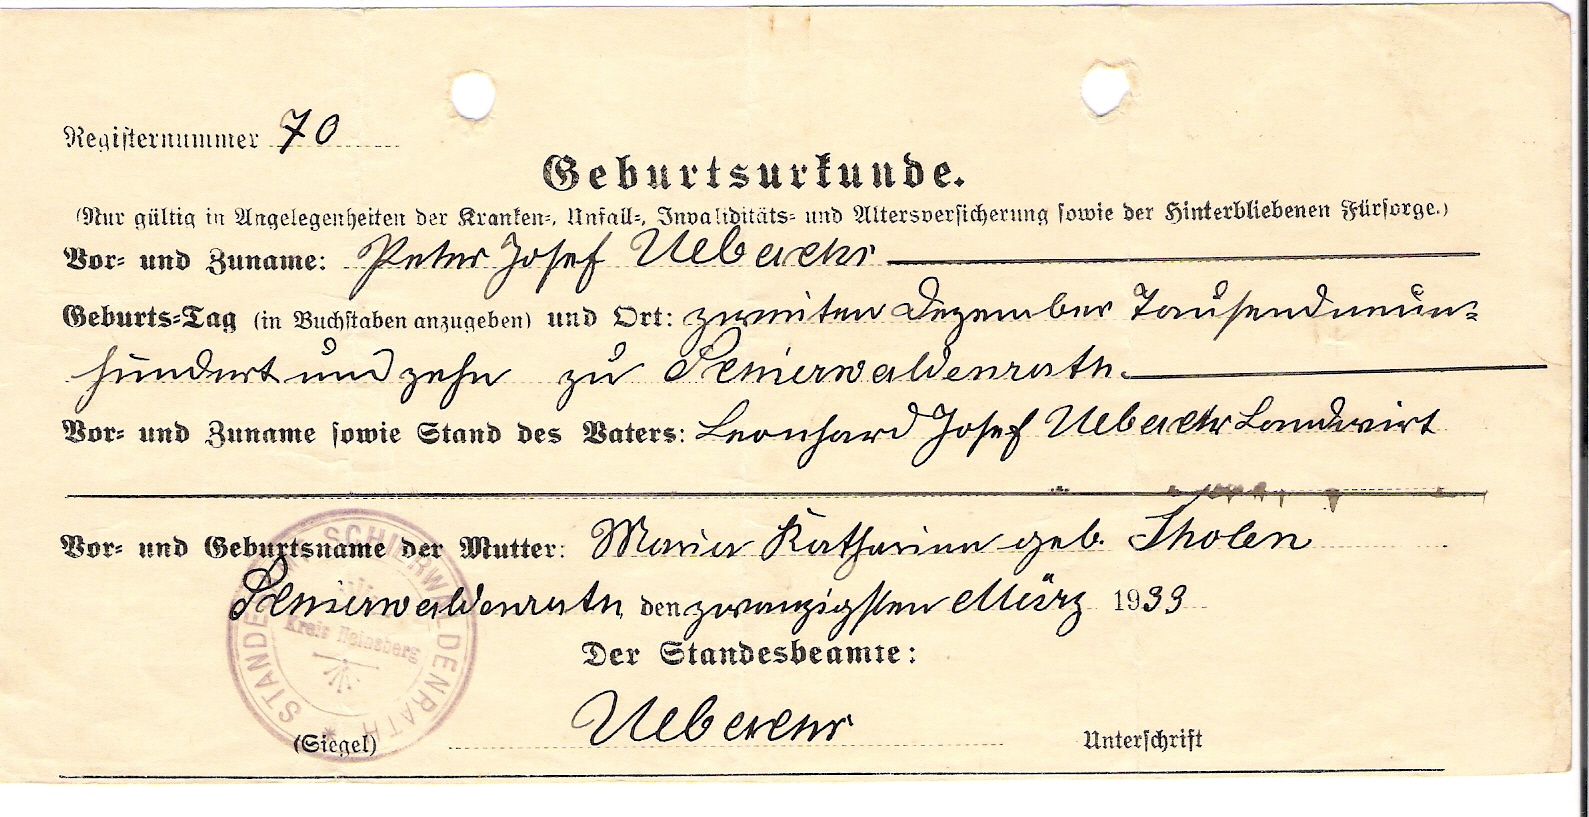 Registernummer 70
Geburtsurkunde.
(Nur gültig in Angelegenheiten der Kranken-, Unfall-, Invaliditäts- und Altersversicherung sowie der Hinterbliebenen Fürsorge.)
Vor- und Zuname: Peter Josef Uebachs
Geburts-Tag (in Buchstaben anzugeben) und Ort: zweiten Dezember Tausendneun-
hundert und zehn zu Schierwaldenrath.
Vor- und Zuname sowie Stand des Vaters: Leonhard Josef Uebachs Landwirt
Vor- und Geburtsname der Mutter: Maria Katharina geb. Tholen
Schierwaldenrath, den zwanzigsten März 1933
Der Standesbeamte:
Uebachs
(Siegel) Unterschrift
STANDESAMT SCHIERWALDENRATH *
Kreis Heinsberg